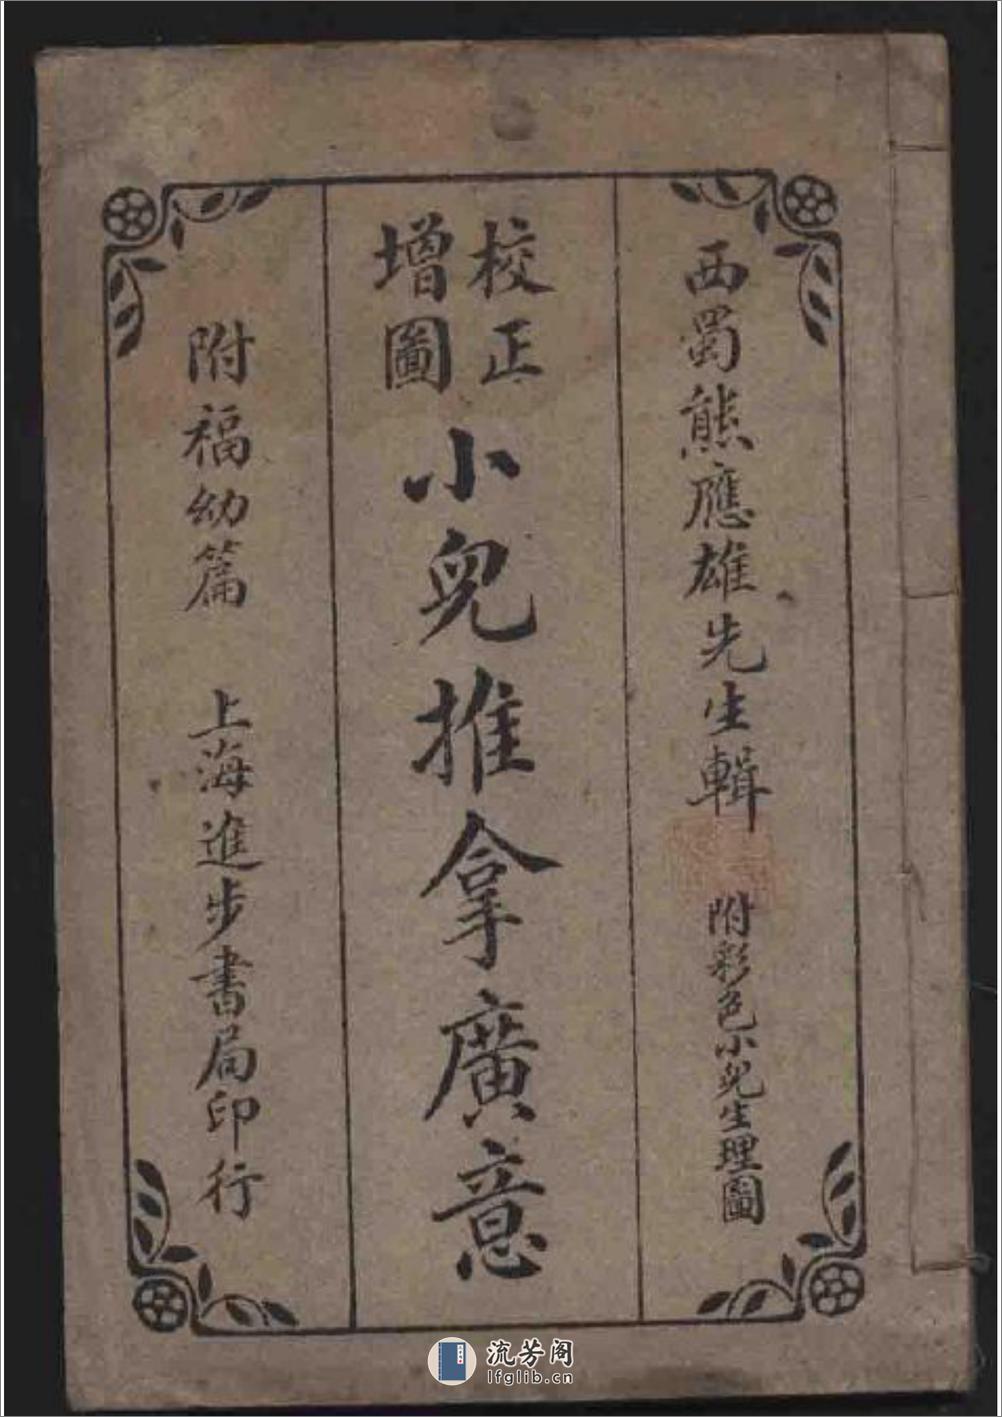 西蜀熊應雄先生輯 附彩色小兒生理圖
校正
增圖
小兒推拿廣意
附福幼篇 上海進步書局印行
流芳阁
lfglib.cn